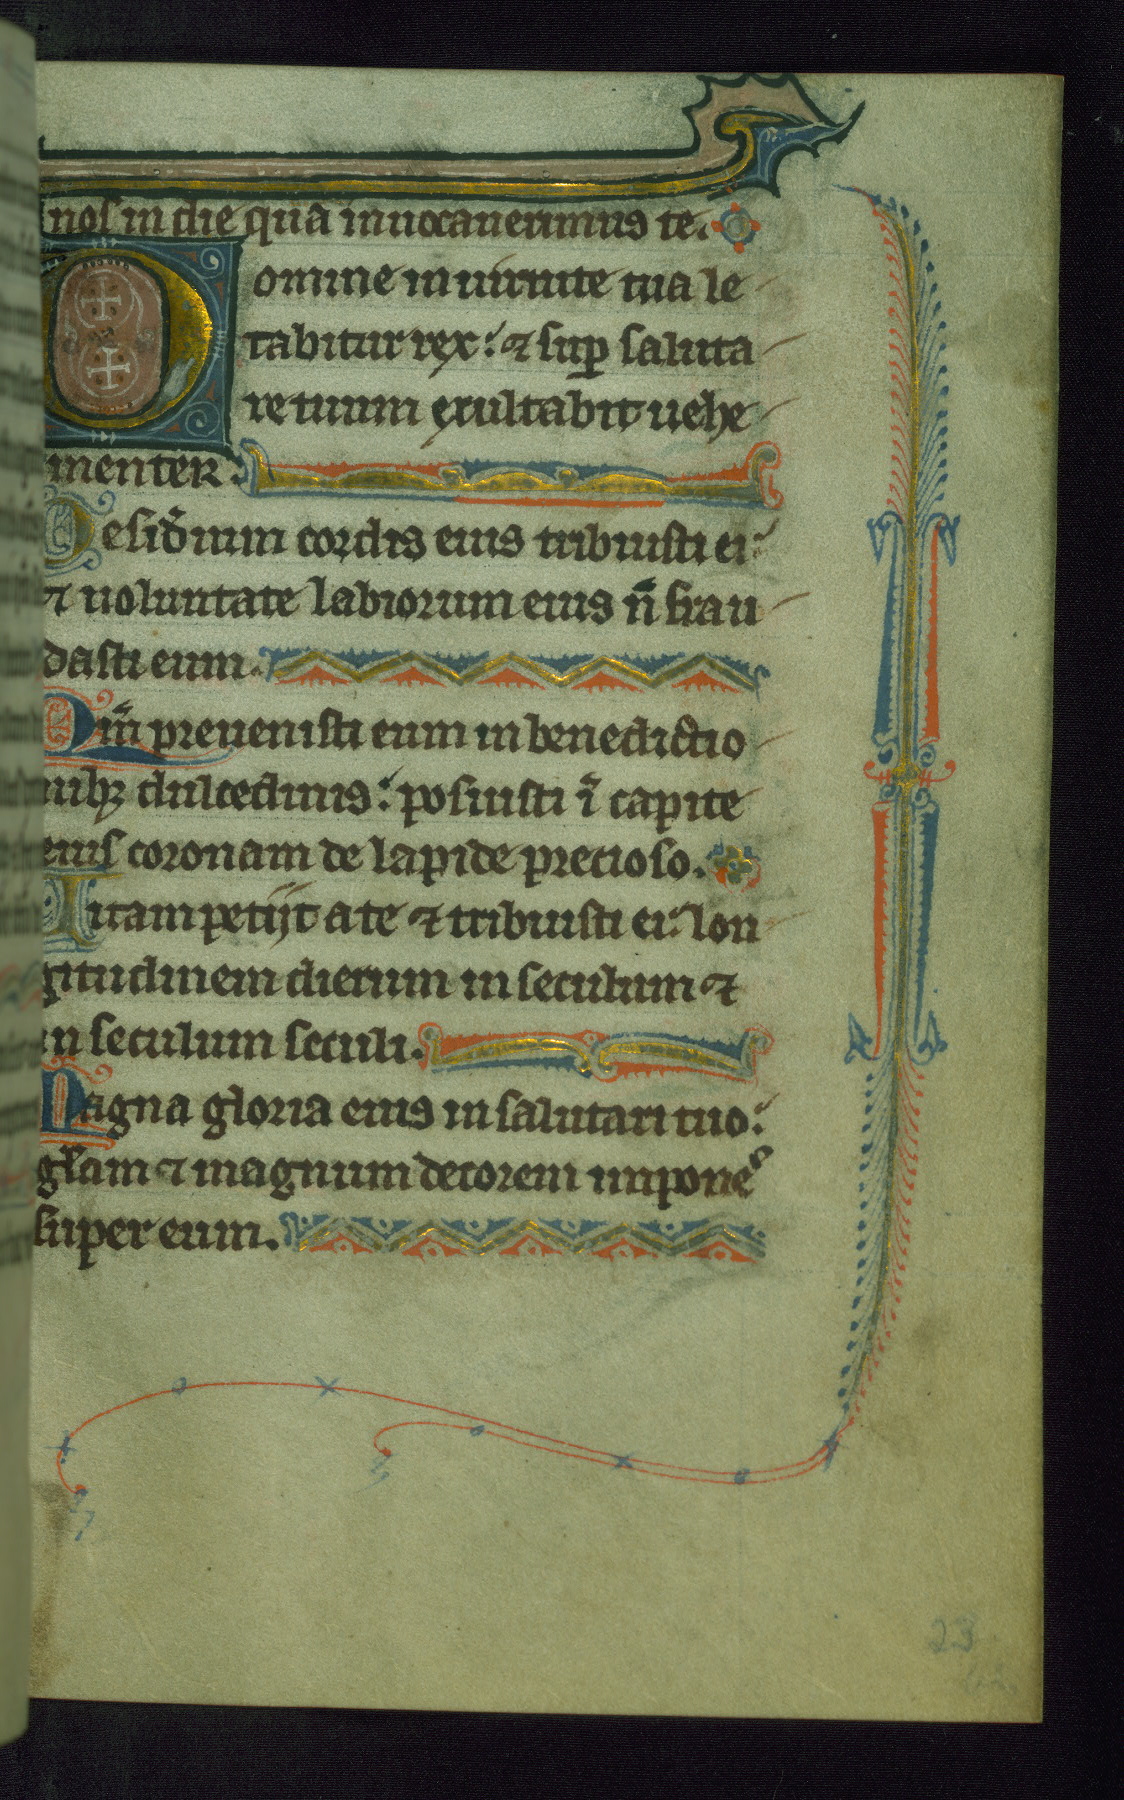 nos in die qua inuocauerimus te.
Domine in uirtute tua le
tabitur rex: ⁊ sup̱ saluta
re tuum exultabit uehe
menter.
Desid̾ium cordis eius tribuisti ei:
⁊ uoluntate labiorum eius n̄ frau
dasti eum.
Qm̄ preuenisti eum in benedictio
nibꝫ dulcedinis: posuisti ī capite
eius coronam de lapide precioso.
Uitam petijt a te ⁊ tribuisti ei: lon
gitudinem dierum in seculum ⁊
in seculum seculi.
Magna gloria eius in salutari tuo:
gl̄am ⁊ magnum decorem impone᷒
super eum.
23